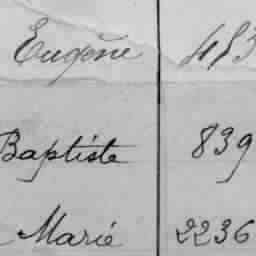 Eugène 483
Baptiste 839
Marie 2236